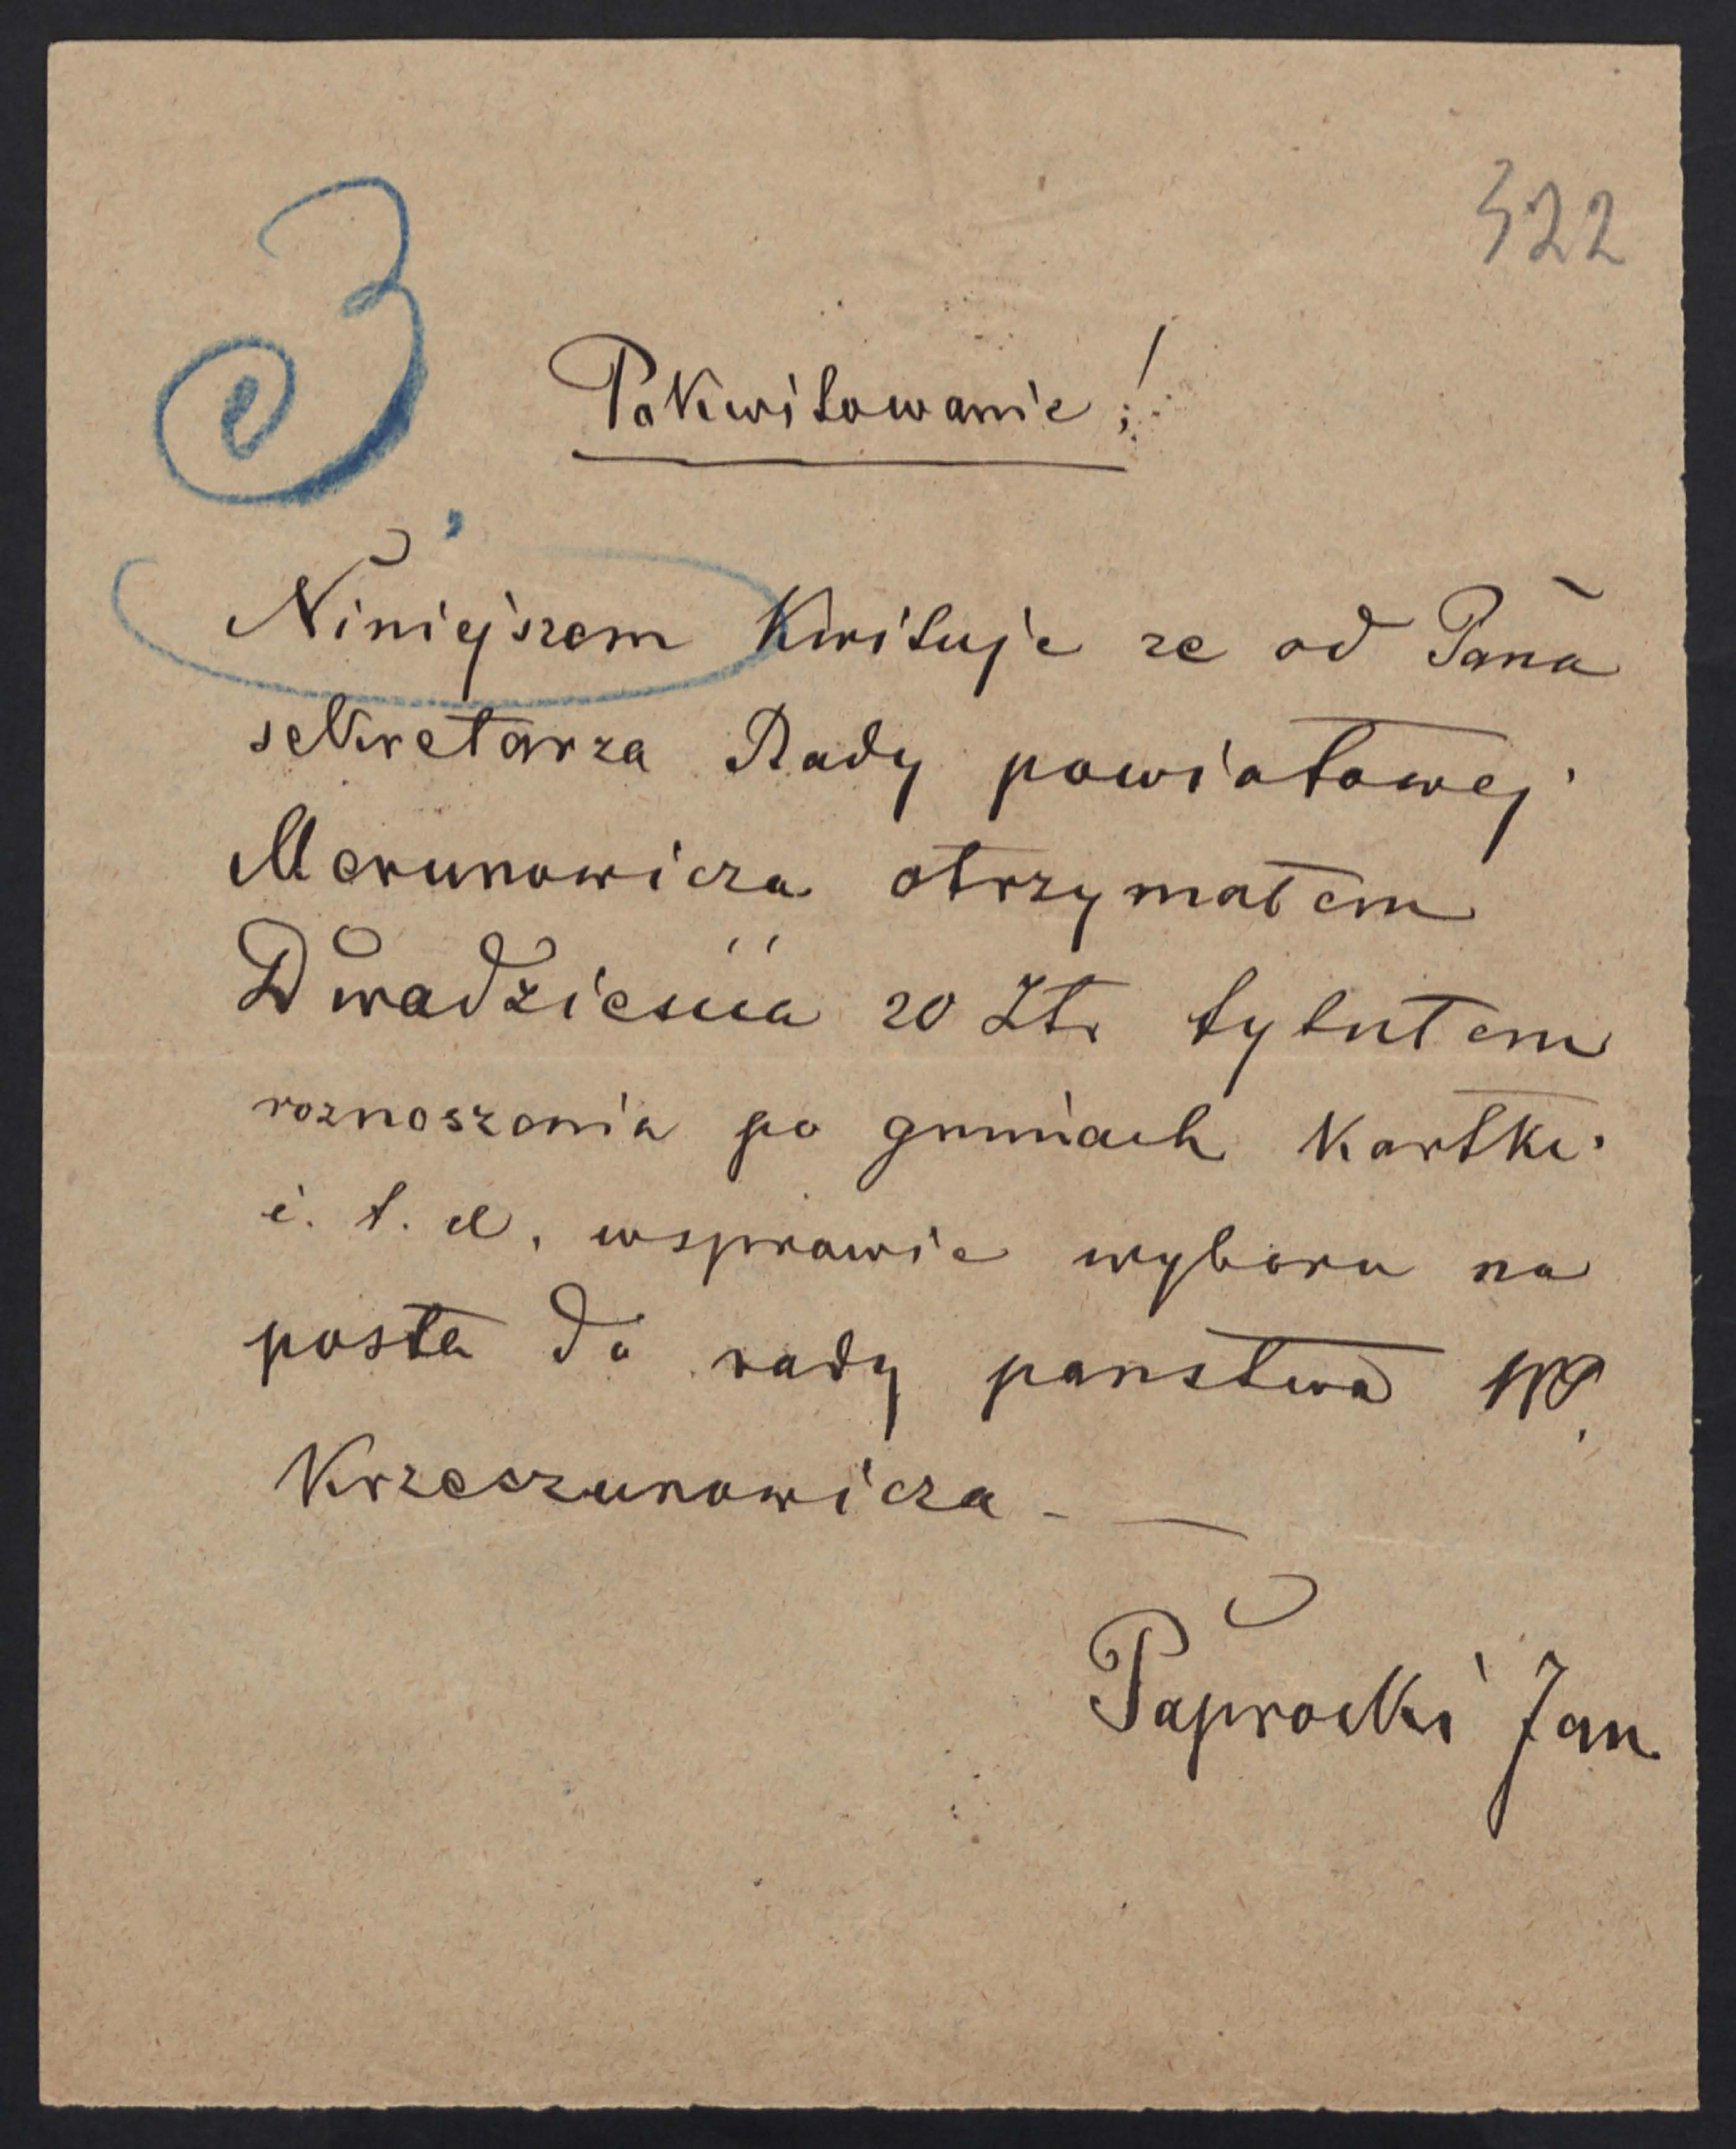 322
3,
Pokwitowanie!
Niniejszem Kwituje ze od Pana
sekretarza Rady powiatowej
Merunowicza otrzymałem
Dwadzieścia 20 Złr tytułem
roznoszenia po gminach Kartki
i. t. d. wsprawie wyboru na
posła do rady panstwa WP.
Krzeczunowicza -
Paprocki Jan